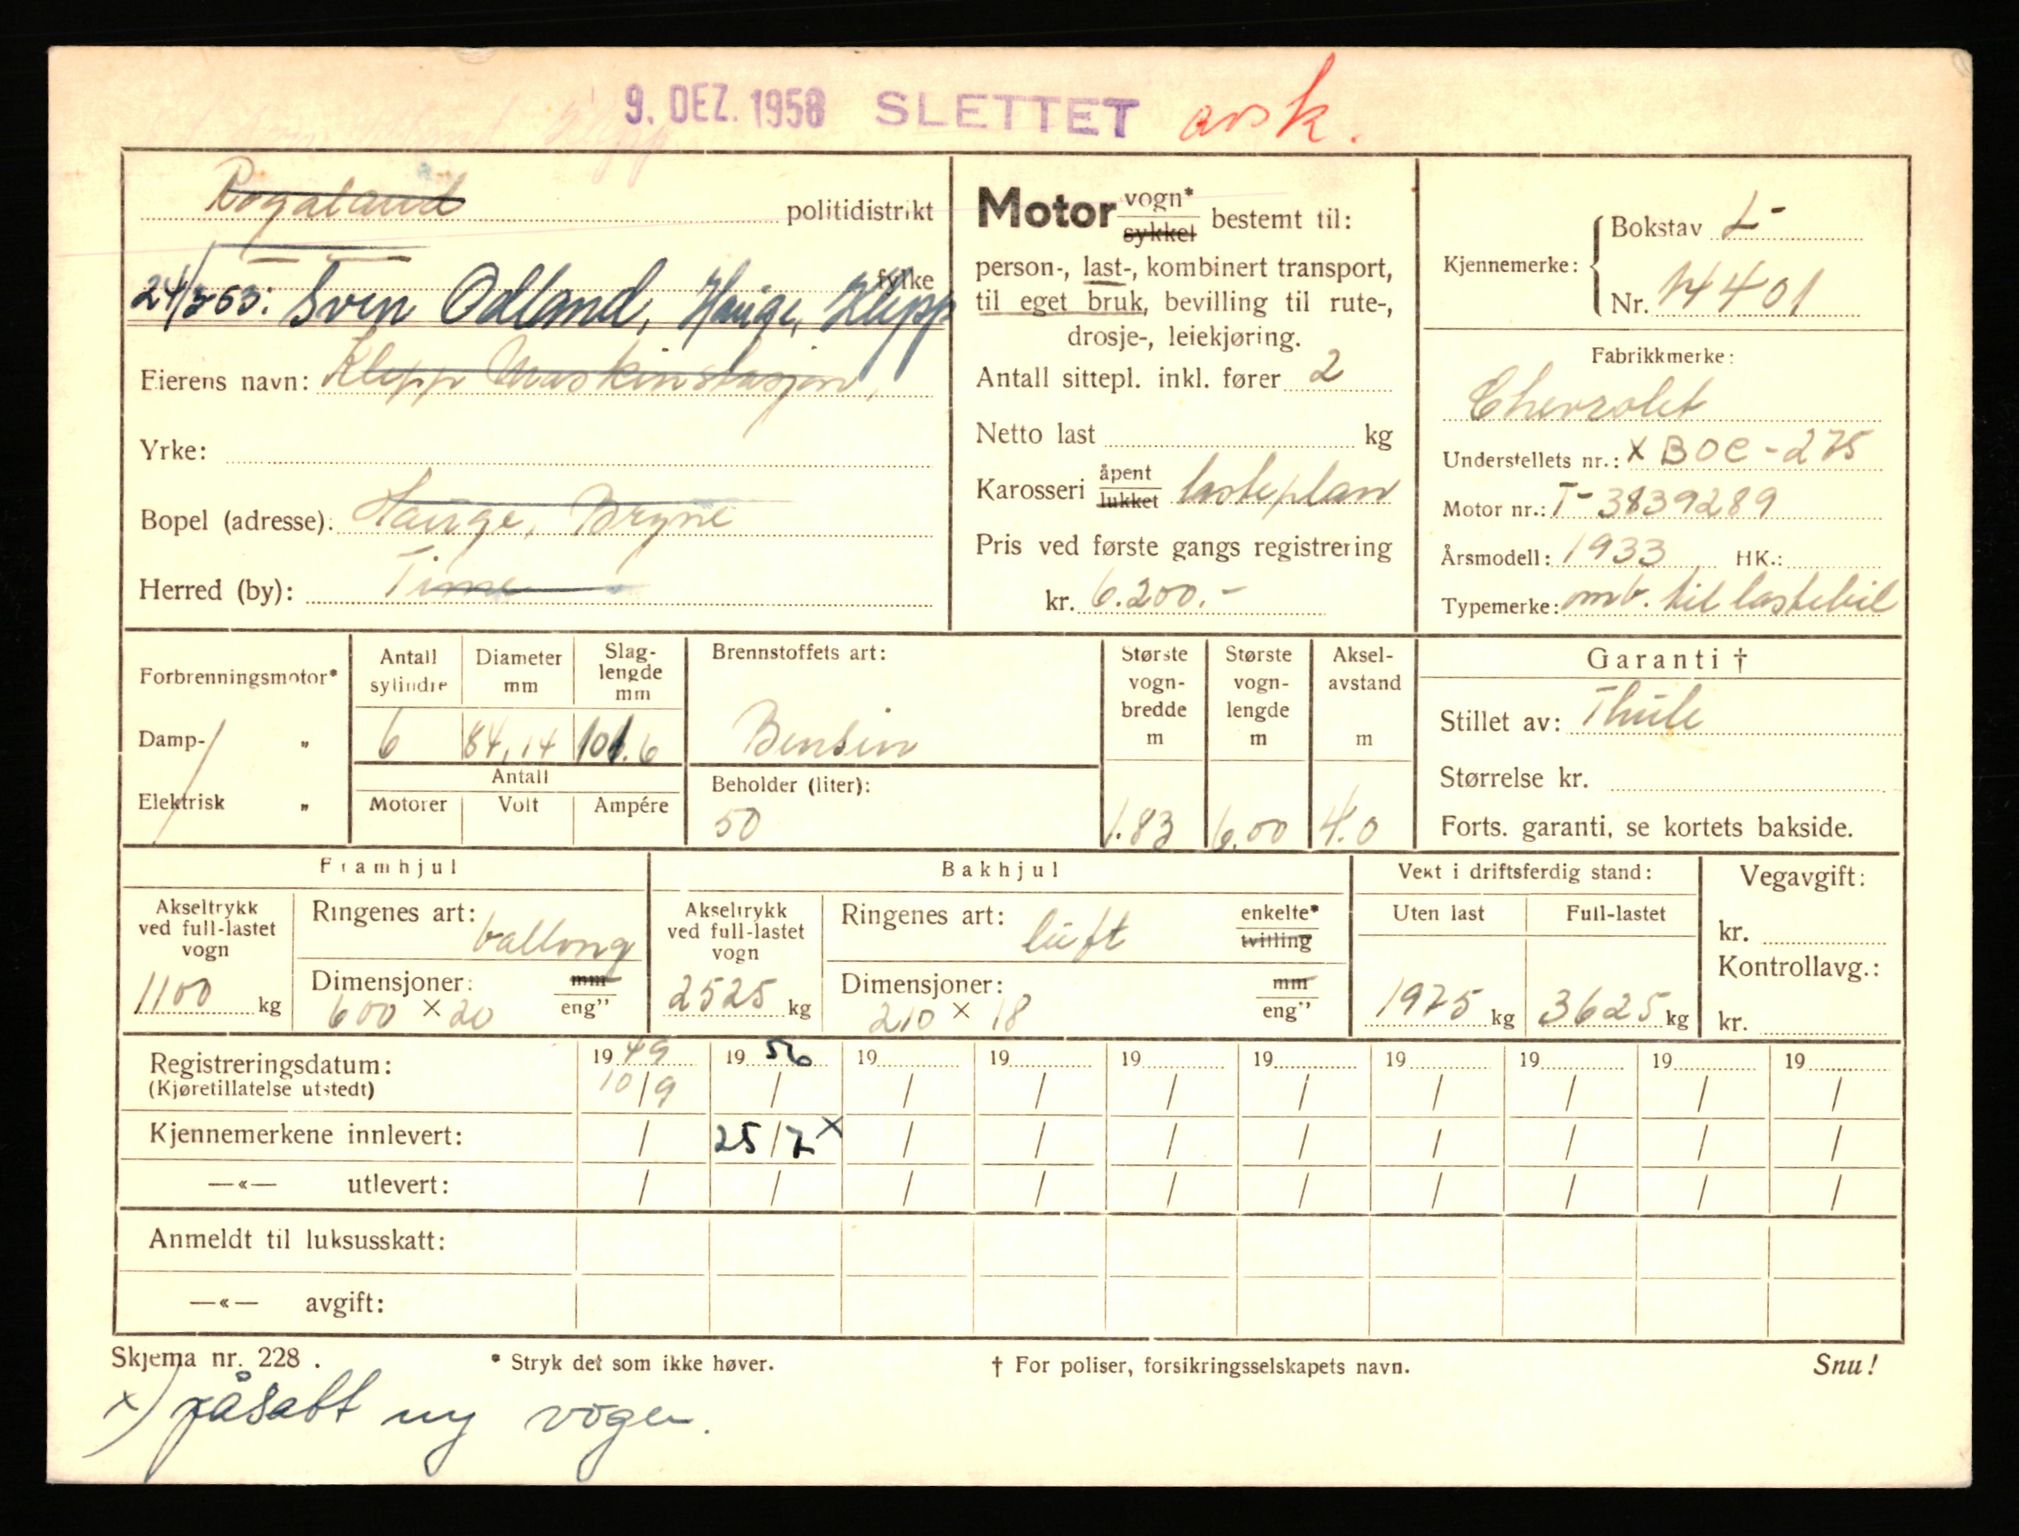 9. DEZ. 1958 SLETTET avsk.
Rogaland politidistrikt
fylke
24/2 53: Sven Odland, Hauge, Klepp
Eierens navn: Klepp Maskinstasjon,
Yrke:
Bopel (adresse): Hauge, Bryne
Herred (by): Time
Motor vogn* sykkel bestemt til:
person-, last-, kombinert transport,
til eget bruk, bevilling til rute-,
drosje-, leiekjøring.
Antall sittepl. inkl. fører 2
Netto last kg
Karosseri åpent lukket lasteplan
Pris ved første gangs registrering
kr. 6.200.-
Kjennemerke: Bokstav L-
Nr. 14401
Fabrikkmerke:
Chevrolet
Understellets nr.: x BOC-275
Motor nr.: T-3839289
Årsmodell: 1933 HK.:
Typemerke: omb. til lastebil
Forbrenningsmotor*
Damp- „
Elektrisk „
Antall sylindre Diameter mm Slag-lengde mm
6 84,14 101.6
Antall
Motorer Volt Ampére
Brennstoffets art:
Bensin
Beholder (liter):
50
Største vogn-bredde m Største vogn-lengde m Aksel-avstand m
1.83 6.00 4.0
Garanti †
Stillet av: Thule
Størrelse kr.
Forts. garanti, se kortets bakside.
Framhjul
Akseltrykk ved full-lastet vogn
1100 kg
Ringenes art: ballong
Dimensjoner: mm
600 x 20 eng"
Bakhjul
Akseltrykk ved full-lastet vogn
2525 kg
Ringenes art: luft enkelte* tvilling
Dimensjoner: mm
210 x 18 eng"
Vekt i driftsferdig stand:
Uten last Full-lastet
1975 kg 3625 kg
Vegavgift:
kr.
Kontrollavg.:
kr.
Registreringsdatum: 1949 1956 19 19 19 19 19 19 19 19
(Kjøretillatelse utstedt) 10/9 / / / / / / / / /
Kjennemerkene innlevert: / 25/7 x / / / / / / / /
—«— utlevert: / / / / / / / / / /
Anmeldt til luksusskatt:
—«— avgift:
Skjema nr. 228 . * Stryk det som ikke høver. † For poliser, forsikringsselskapets navn. Snu!
x) påsatt ny vogn.